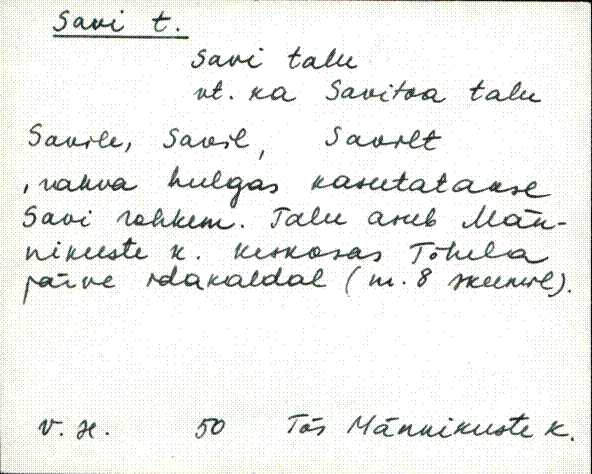 Savi t.
Savi talu
vt. ka Savitoa talu
Savile, Savil, Savilt
, rahva hulgas kasutatakse
Savi rohkem. Talu asub Män-
nikuste k. keskosas Tõhela
järve idakaldal (nr. 8 skeemil).
v. x. 50 Tõs Männikuste k.